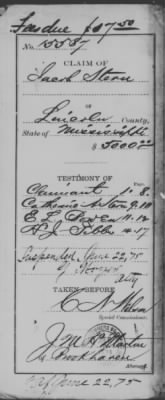 Fees due $07.50
No. 15587
CLAIM OF
Jacob Stern
OF
Lincoln County,
State of Mississippi
$ 5000.00
TESTIMONY OF
Page.
Claimant 1-8
Catharine Stern 9-10
E. L. Bowen 11-13
H. J. Tibbs 14-17
Suspended June 22, 75
Atty
TAKEN BEFORE
C. N. Wilson
Special Commissioner.
J. M. H. Martin
Brookhaven
Attorney.
June 22, 75